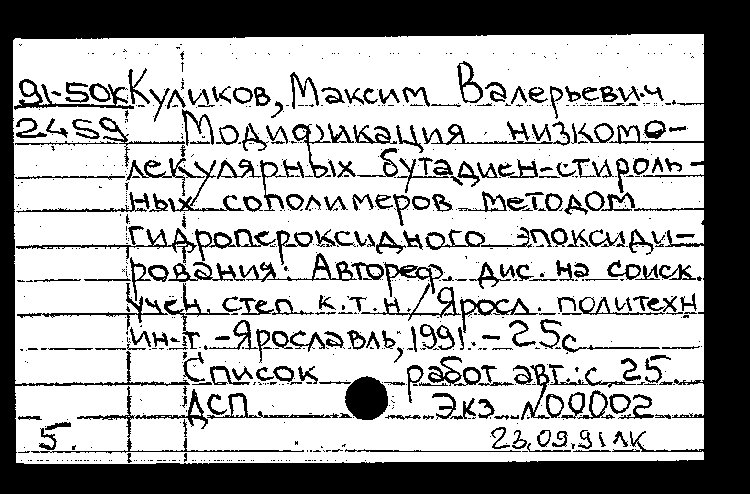 91-50к Куликов, Максим Валерьевич.
2459 Модификация низкомо-
лекулярных бутадиен-стироль-
ных сополимеров методом
гидропероксидного эпоксиди-
рования: Автореф. дис. на соиск.
учен. степ. к.т.н./Яросл. политехн
ин-т. -Ярославль, 1991. - 25с.
Список работ авт.: с. 25
ДСП. Экз. N00002
5. 23.09.91 ЛК